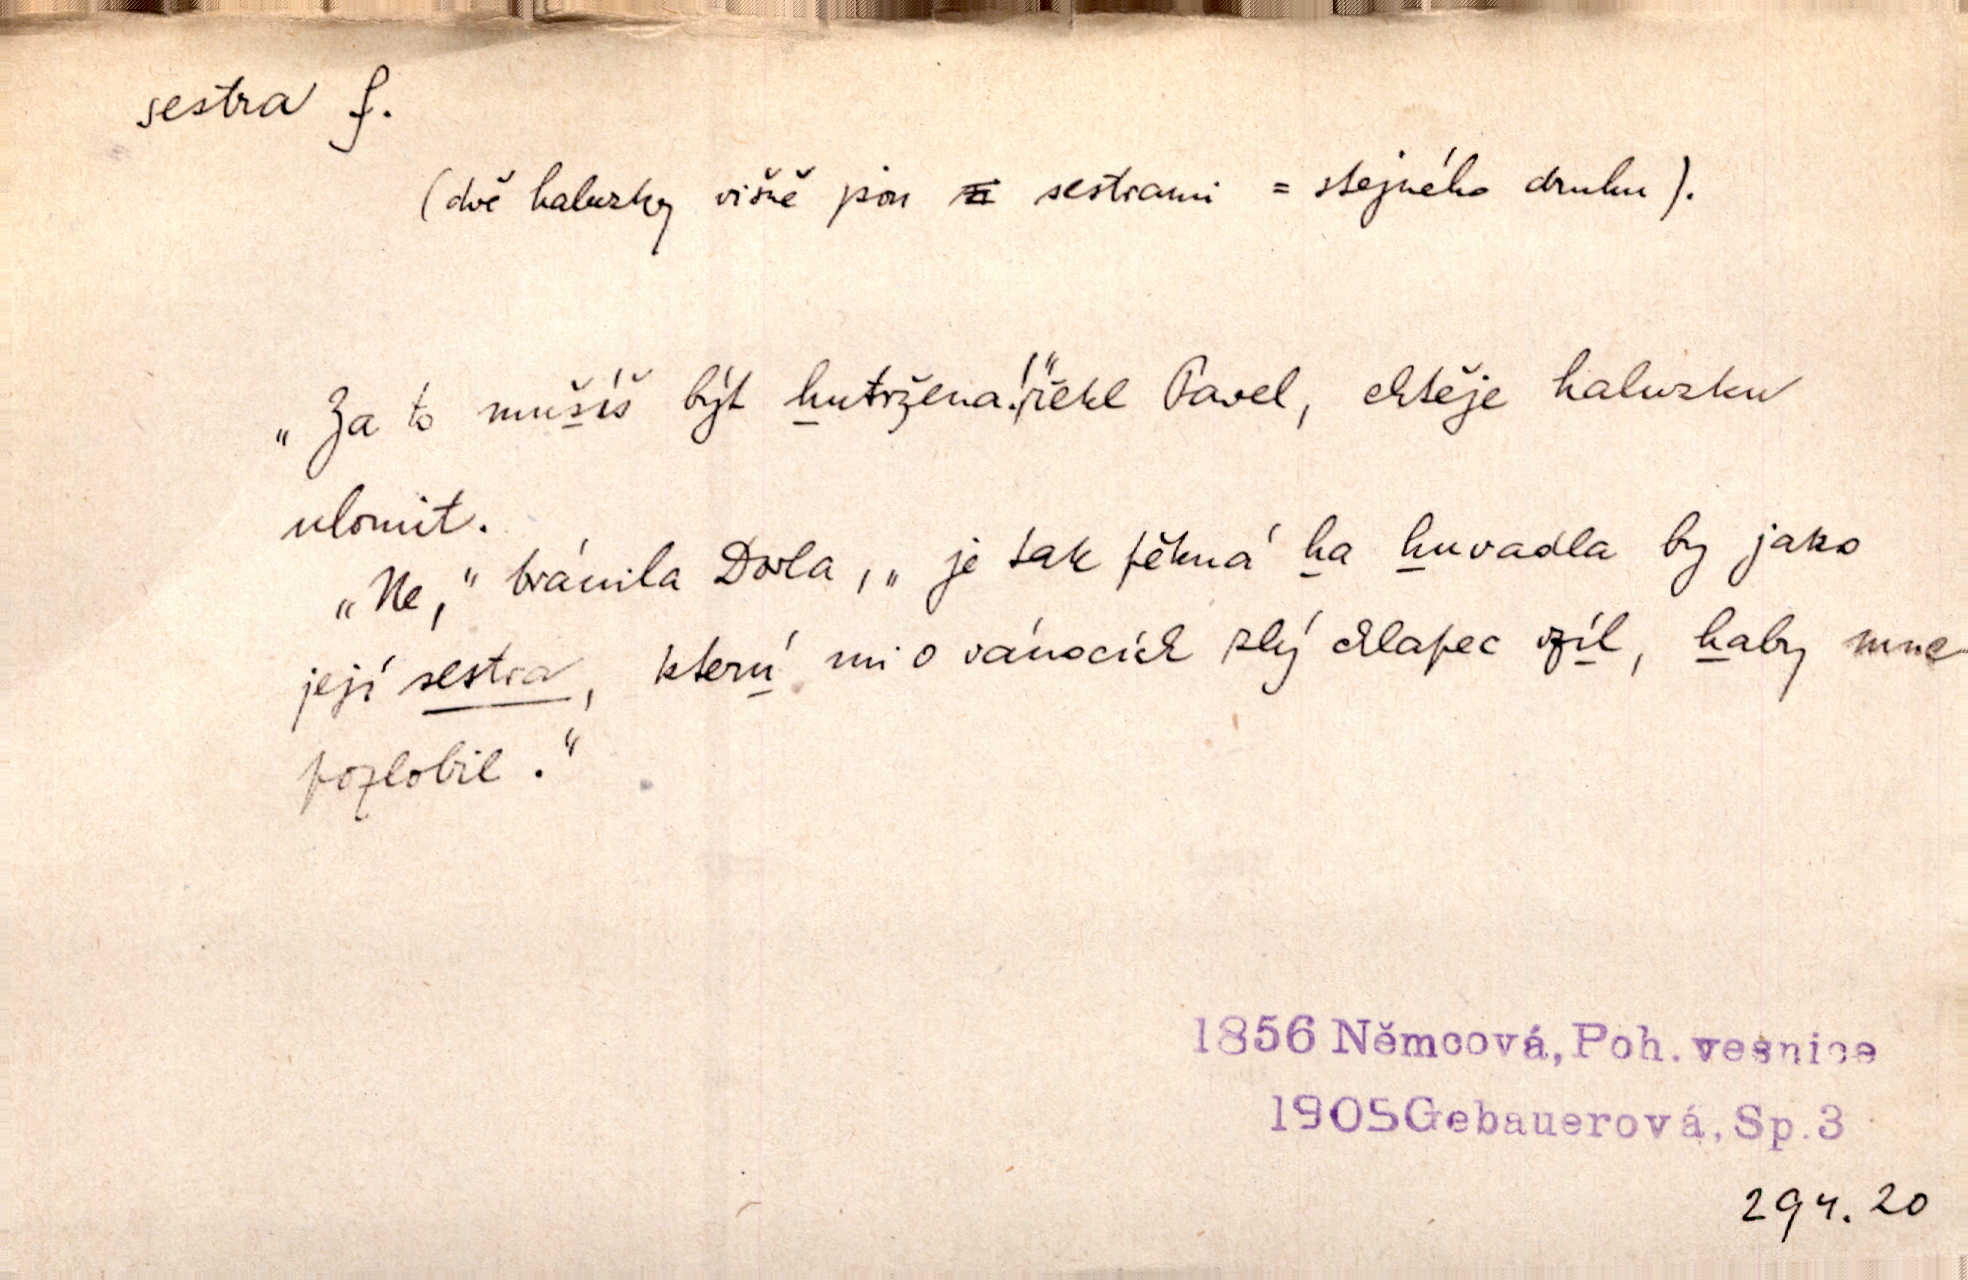 sestra f.
(dvě haluzky višně jsou sestrami = stejného druhu).
„Za to mušíš být hutržena!“ řekl Pavel, chtěje haluzku
ulomit.
„Ne,“ bránila Dorla, „je tak pěkná ha huvadla by jako
její sestra, kterú mi o vánocích zlý chlapec vzíl, haby mne
pozlobil.“
1856 Němcová, Poh. vesnice
1905 Gebauerová, Sp. 3
294. 20